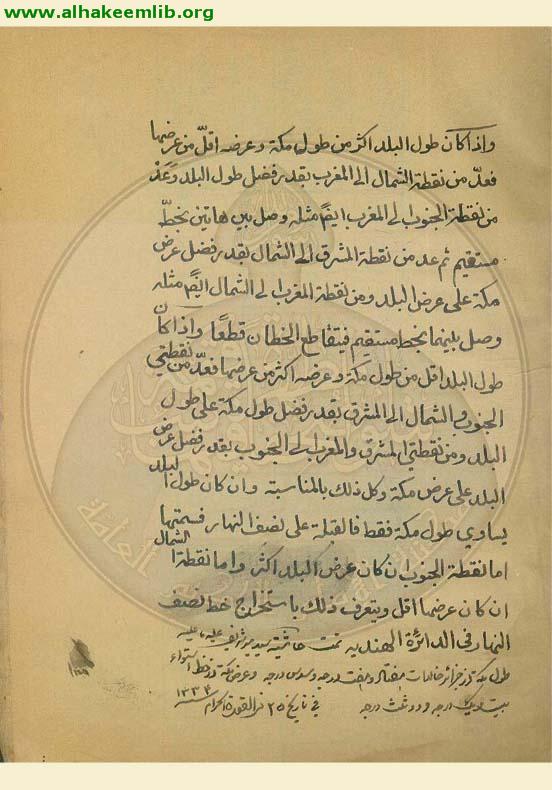 www.alhakeemlib.org
واذا كان طول البلد اكثر من طول مكة وعرضه اقلّ من عرضها
فعدّ من نقطة الشمال الى المغرب بقدر فضل طول البلد وعدّ
من نقطة الجنوب الى المغرب ايضًا مثله وصل بين هاتين بخطّ
مستقيم ثم عد من نقطة المشرق الى الشمال بقدر فضل عرض
مكة على عرض البلد ومن نقطة المغرب الى الشمال ايضًا مثله
وصل بينهما بخط مستقيم فيتقاطع الخطان قطعًا واذا كان
طول البلد اقل من طول مكة وعرضه اكثر من عرضها فعدّ من نقطتي
الجنوب والشمال الى المشرق بقدر فضل طول مكة على طول
البلد ومن نقطتي المشرق والمغرب الى الجنوب بقدر فضل عرض
البلد على عرض مكة وكل ذلك بالمناسبة وان كان طول البلد
يساوي طول مكة فقط فالقبلة على نصف النهار فسمتها
اما نقطة الجنوب ان كان عرض البلد اكثر واما نقطة الشمال
ان كان عرضها اقل ويتعرف ذلك باستخراج خط نصف
النهار في الدائرة الهنديه تمت حاشية سيد مير شريف عليه
طول مكة از جزائر خالدات هفتاد وهفت درجه وسدس درجه وعرض مكة از خط استواء
بيست ويك درجه ودو ثلث درجه في تاريخ ٢٥ ذي القعدة الحرام سنه ١٢٣٤